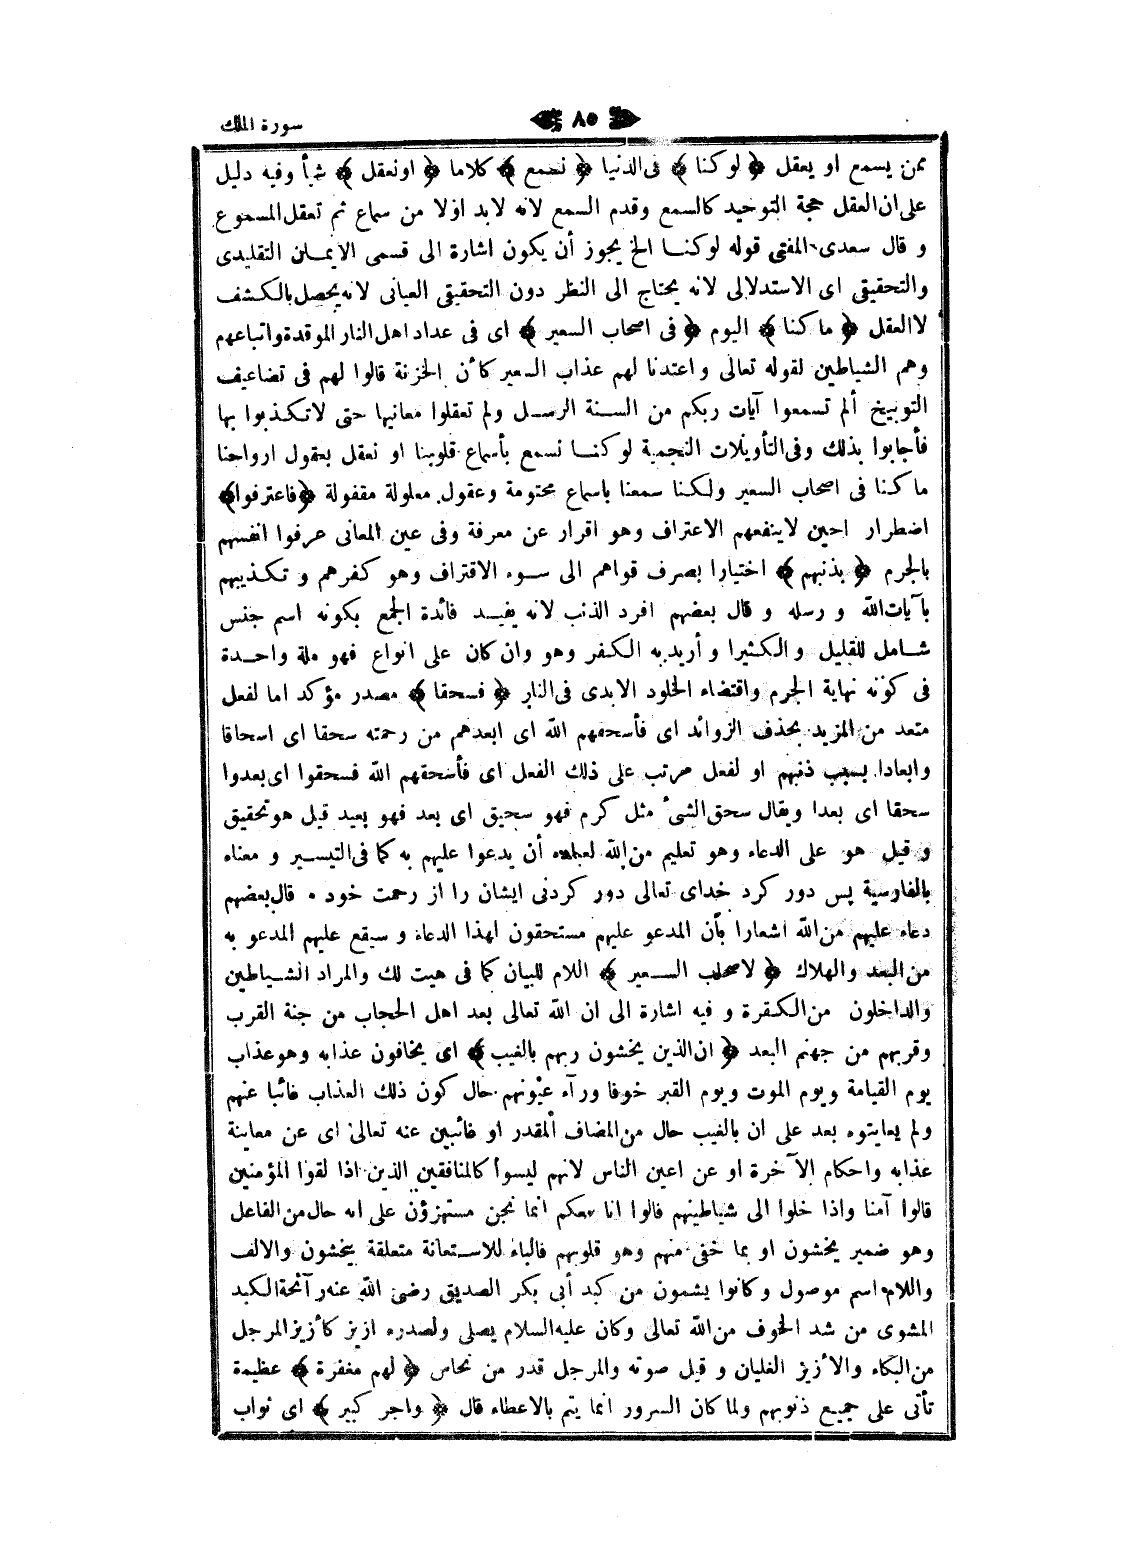 سورة الملك
٨٥
ممن يسمع او يعقل ﴿ لو كنا ﴾ فى الدنيا ﴿ نسمع ﴾ كلاما ﴿ او نعقل ﴾ شيأ وفيه دليل
على ان العقل حجة التوحيد كالسمع وقدم السمع لانه لابد اولا من سماع ثم تعقل المسموع
و قال سعدى المفتى قوله لو كنا الخ يجوز أن يكون اشارة الى قسمى الايمان التقليدى
والتحقيقى اى الاستدلالى لانه يحتاج الى النظر دون التحقيقى العيانى لانه يحصل بالكشف
لا العقل ﴿ ما كنا ﴾ اليوم ﴿ فى اصحاب السعير ﴾ اى فى عداد اهل النار الموقدة واتباعهم
وهم الشياطين لقوله تعالى واعتدنا لهم عذاب السعير كأن الخزنة قالوا لهم فى تضاعيف
التوبيخ ألم تسمعوا آيات ربكم من السنة الرسل ولم تعقلوا معانيها حتى لاتكذبوا بها
فأجابوا بذلك وفى التأويلات النجمية لو كنا نسمع بأسماع قلوبنا او نعقل بعقول ارواحنا
ما كنا فى اصحاب السعير ولكنا سمعنا باسماع محتومة وعقول معلولة مقفولة ﴿ فاعترفوا ﴾
اضطرار احين لاينفعهم الاعتراف وهو اقرار عن معرفة وفى عين المعانى عرفوا انفسهم
بالجرم ﴿ بذنبهم ﴾ اختيارا بصرف قواهم الى سوء الاقتراف وهو كفرهم و تكذيبهم
بآيات الله و رسله و قال بعضهم افرد الذنب لانه يفيد فائدة الجمع بكونه اسم جنس
شامل للقليل و الكثيرا و أريد به الكفر وهو وان كان على انواع فهو ملة واحدة
فى كونه نهاية الجرم واقتضاء الخلود الابدى فى النار ﴿ فسحقا ﴾ مصدر مؤكد اما لفعل
متعد من المزيد بحذف الزوائد اى فأسحقهم الله اى ابعدهم من رحمته سحقا اى اسحاقا
وابعادا بسبب ذنبهم او لفعل مرتب على ذلك الفعل اى فأسحقهم الله فسحقوا اى بعدوا
سحقا اى بعدا ويقال سحق الشئ مثل كرم فهو سحيق اى بعد فهو بعيد قيل هو تحقيق
و قيل هو على الدعاء وهو تعليم من الله لعباده أن يدعوا عليهم به كما فى التيسير و معناه
بالفارسية پس دور كرد خداى تعالى دور كردنى ايشان را از رحمت خود ٠ قال بعضهم
دعاء عليهم من الله اشعارا بأن المدعو عليهم مستحقون لهذا الدعاء و سيقع عليهم المدعو به
من البعد والهلاك ﴿ لاصحاب السعير ﴾ اللام للبيان كما فى هيت لك والمراد الشياطين
والداخلون من الكفرة و فيه اشارة الى ان الله تعالى بعد اهل الحجاب من جنة القرب
وقربهم من جهنم البعد ﴿ ان الذين يخشون ربهم بالغيب ﴾ اى يخافون عذابه وهو عذاب
يوم القيامة ويوم الموت ويوم القبر خوفا ورآء عيونهم حال كون ذلك العذاب غائبا عنهم
ولم يعاينوه بعد على ان بالغيب حال من المضاف المقدر او غائبين عنه تعالى اى عن معاينة
عذابه واحكام الآخرة او عن اعين الناس لانهم ليسوا كالمنافقين الذين اذا لقوا المؤمنين
قالوا آمنا واذا خلوا الى شياطينهم قالوا انا معكم انما نحن مستهزؤن على انه حال من الفاعل
وهو ضمير يخشون او بما خفى منهم وهو قلوبهم فالباء للاستعانة متعلقة بيخشون والالف
واللام اسم موصول وكانوا يشمون من كبد أبى بكر الصديق رضى الله عنه رآئحة الكبد
المشوى من شد الخوف من الله تعالى وكان عليه السلام يصلى ولصدره ازيز كأزيز المرجل
من البكاء والأزيز الغليان و قيل صوته والمرجل قدر من نحاس ﴿ لهم مغفرة ﴾ عظيمة
تأتى على جميع ذنوبهم ولما كان السرور انما يتم بالاعطاء قال ﴿ واجر كبير ﴾ اى ثواب